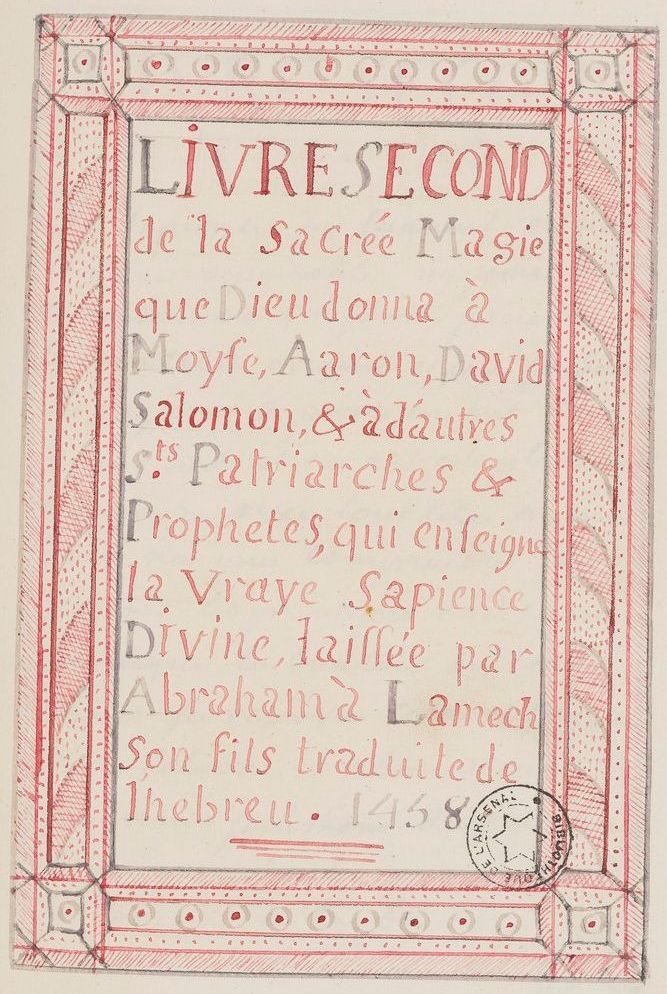 LiVRE SECOND
de la Sacrée Magie
que Dieu donna à
Moyſe, Aaron, David
Salomon, & à d'autres
s.ts Patriarches &
Prophetes, qui enſeigne
la Vraye Sapience
Divine, laiſſée par
Abraham à Lamech
Son fils traduite de
l'hebreu. 1458
BIBLIOTHÈQUE DE L'ARSENAL